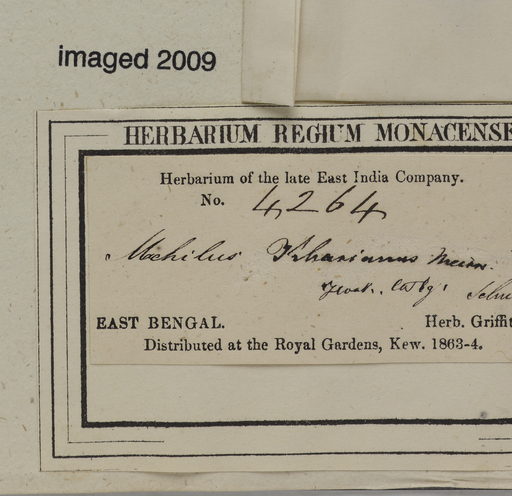 imaged 2009
HERBARIUM REGIUM MONACENSE
Herbarium of the late East India Company.
No. 4264
Machilus Khasianus Meisn.
EAST BENGAL. Herb. Griffit
Distributed at the Royal Gardens, Kew. 1863-4.